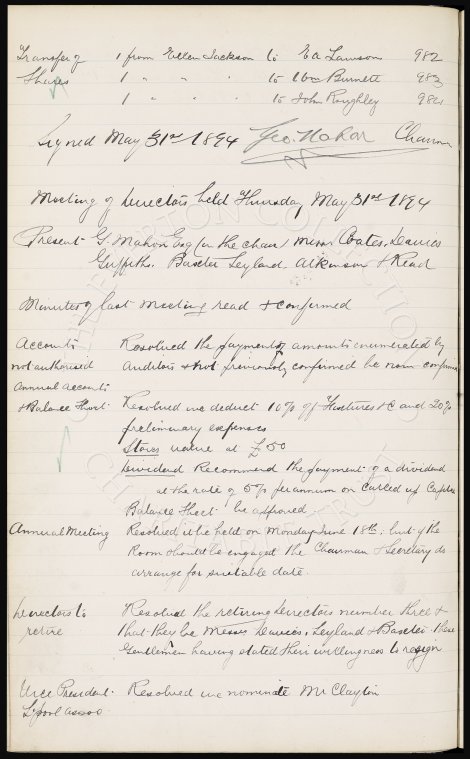 Transfer of 1 from Ellen Jackson to Ed Lawson 982
Shares 1 " " " to Wm Burnett 983
1 " " " to John Roughley 984
Signed May 31st 1894 Geo. Mahon Chairman
Meeting of Directors held Thursday May 31st 1894
Present G. Mahon Esq (in the chair) Messrs Coates, Davies
Griffiths, Baxter Leyland, Atkinson & Read
Minutes of last meeting read & confirmed
Accounts Resolved the payments of amounts enumerated by
not authorised Auditors & not previously confirmed be now confirmed
Annual accounts
& Balance Sheet Resolved we deduct 10% off Fixtures &c and 20%
preliminary expenses
Stores value at £50
Dividend Recommend the payment of a dividend
at the rate of 5% per annum on called up Capital
Balance Sheet be approved
Annual Meeting Resolved it be held on Monday June 18th: but if the
Room should be engaged the Chairman & Secretary do
arrange for suitable date.
Directors to Resolved the retiring Directors number three &
retire that they be Messrs Davies, Leyland & Baxter these
Gentlemen having stated their willingness to resign
Vice President Resolved we nominate Mr Clayton
L'pool assoc